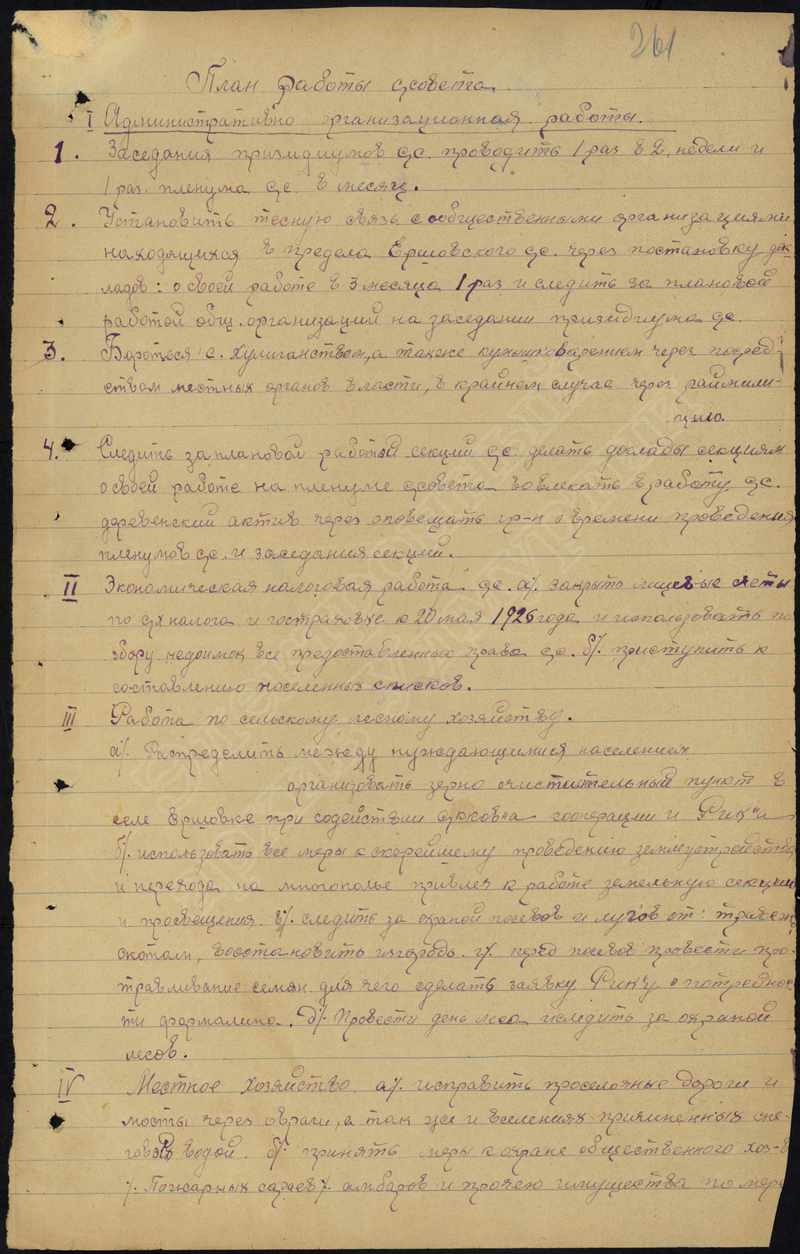 261
План работы с/совета.
I Административно организационная работы.
1. Заседания призидиумов с/с. проводить 1 раз в 2 недели и
1 раз пленума с/с. в месяц.
2. Установить тесную связь с общественными организациями
находящихся в предела Ершовского с/с. через постановку док-
ладов: о своей работе в 3 месяца 1 раз и следить за плановой
работой общ. организаций на заседании призидиума с/с.
3. Бороться с. хулиганством, а также кумышковарением через посред-
ством местных органов власти, в крайнем случае через раймили-
цию
4. Следить за плановой работой секций с/с. делать доклады секциям
о своей работе на пленуме с/совета вовлекать в работу с/с.
деревенский актив через оповещать гр-н о времени проведения
пленумов с/с. и заседания секций.
II Экономическая налоговая работа с/с. а/. закрыть лицевые счеты
по с/х налога и госстраховке к 20 мая 1926 года и использовать по
сбору недоимок все предоставленные права с/с. б/. приступить к
составлению населенных списков.
III Работа по сельскому лесному хозяйству.
а/. Распределить между нуждающимися населением
организовать зерно очистительный пункт в
селе Ершовке при содействии кооперации и Рик'а
б/. использовать все меры к скорейшему проведению землеустройства
и перехода на многополье привлеч к работе земельную секцию
и просвещения. в/. следить за охраной посевов и лугов от:
скотом, восстановить изгородь. г/. перед посевов провести про-
травливание семян для чего сделать заявку Рик'у о потребнос
ти формалина. д/. Провести день леса и следить за охраной
лесов.
IV Местное хозяйство а/. исправить проселочные дороги и
мосты через овраги, а так же и в селениях причиненных сне-
говой водой. б/. принять меры к охране общественного хоз-в
/. Пожарных сараев/. амбаров и прочего имущества по мере